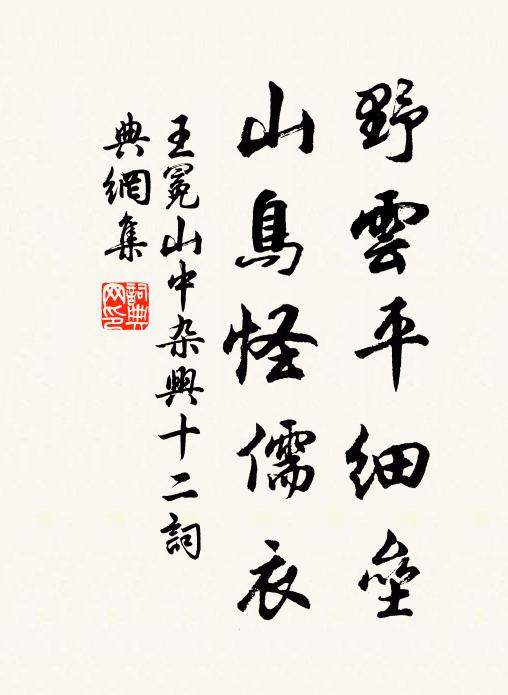 野雲平細壑
山鳥怪儒衣
王冕山中杂興十二詞
典網集
詞典
网印